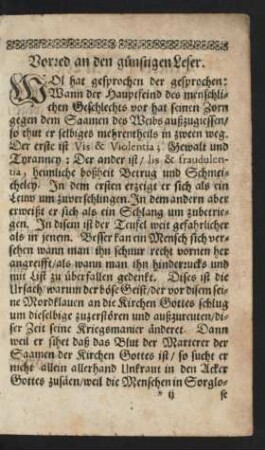 Vorred an den günstigen Leser.
WOl hat gesprochen der gesprochen:
Wann der Hauptfeind des menschli-
chen Geschlechts vor hat seinen Zorn
gegen dem Saamen des Weibs außzugiessen/
so thut er selbiges mehrentheils in zween weg.
Der erste ist Vis & Violentia; Gewalt und
Tyranney: Der ander ist/ lis & fraudulen-
tia, heimliche boßheit Betrug und Schmei-
cheley. In dem ersten erzeigt er sich als ein
Leuw um zuverschlingen. In dem andern aber
erweißt er sich als ein Schlang um zubetrie-
gen. In disem ist der Teufel weit gefährlicher
als in jenem. Besser kan ein Mensch sich ver-
sehen wann man ihn schnur recht vornen her
angreifft/als wann man ihn hinderrucks und
mit List zu überfallen gedenkt. Dises ist die
Ursach/warum der böse Geist/der vor disem sei-
ne Mordklauen an die Kirchen Gottes schlug
um dieselbige zuzerstören und außzureuten/di-
ser Zeit seine Kriegsmanier änderet. Dann
weil er sihet daß das Blut der Marterer der
Saamen der Kirchen Gottes ist/ so sucht er
nicht allein allerhand Unkraut in den Acker
Gottes zusäen/weil die Menschen in Sorglo-
* ij se